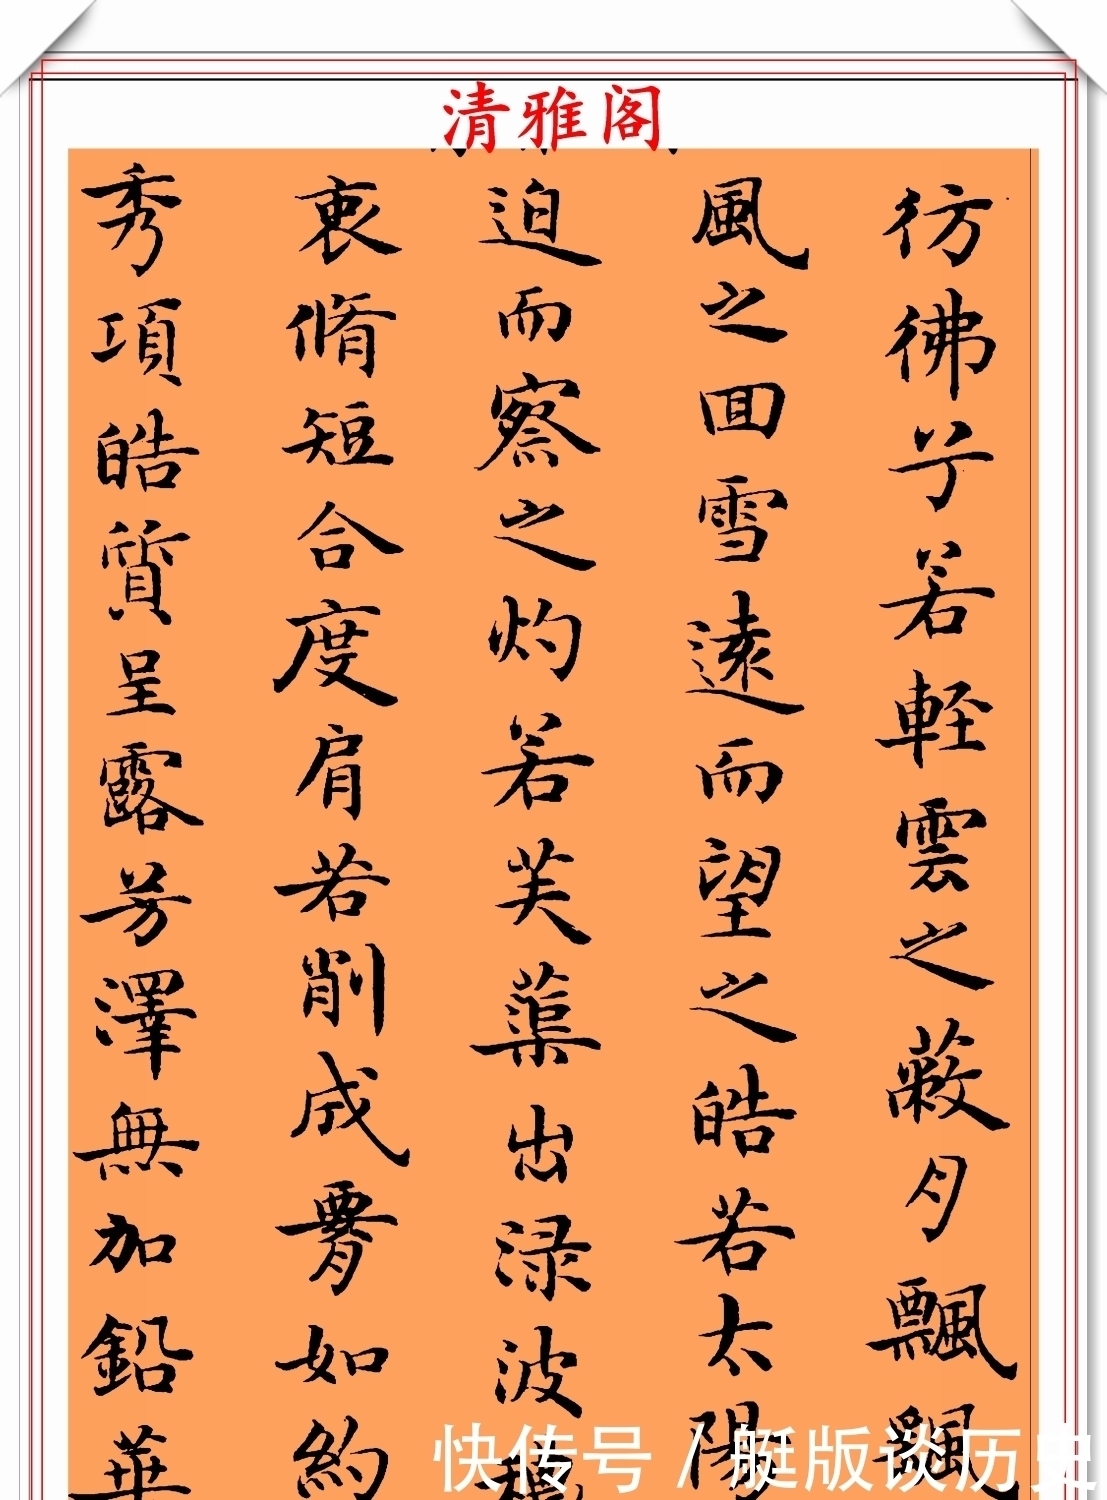 清雅阁
彷彿兮若軽雲之蔽月飄飄
風之回雪遠而望之皓若太陽
迫而察之灼若芙蕖出渌波
衷脩短合度肩若削成腰如約
秀項皓質呈露芳澤無加鉛華
快传号 / 艇版谈历史